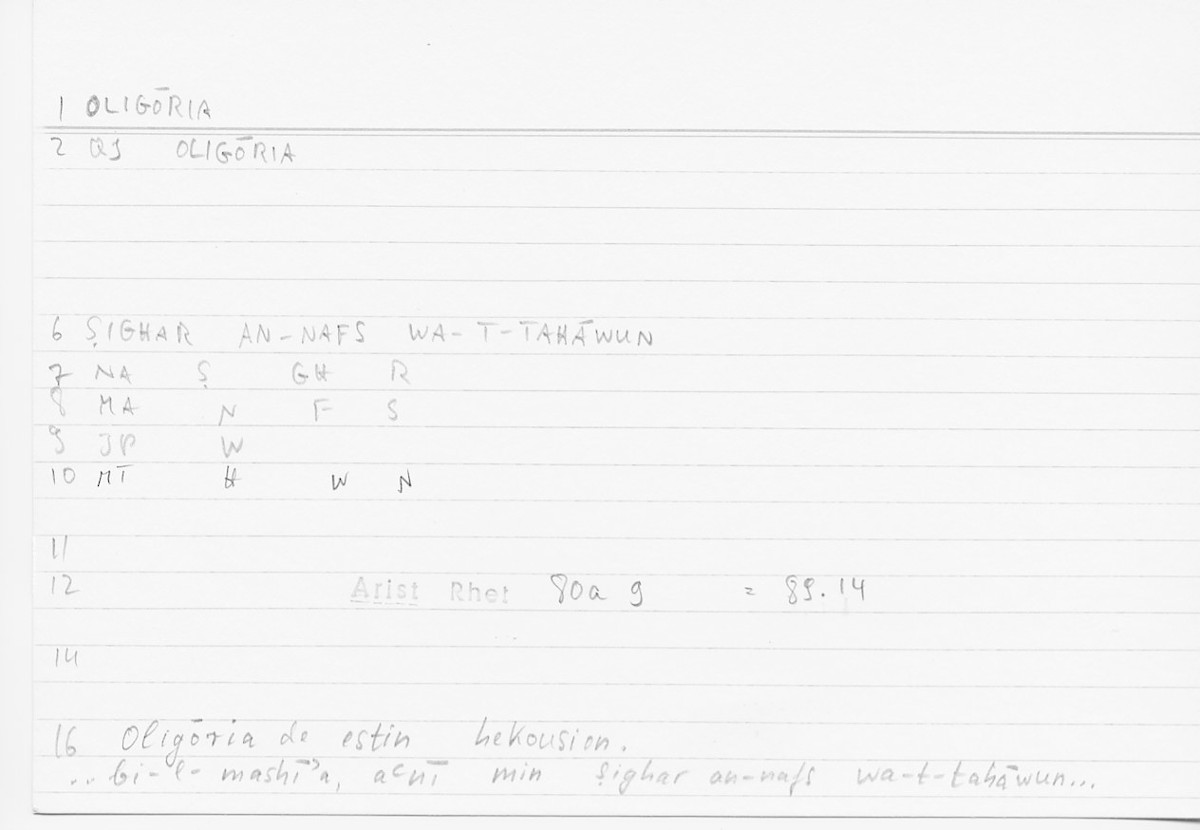 1 OLIGŌRIA
2 QS OLIGŌRIA
6 ṢIGHAR AN-NAFS WA-T-TAHĀWUN
7 NA Ṣ GH R
8 MA N F S
9 JP W
10 MT H W N
11
12 Arist Rhet 80a 9 = 89.14
14
16 Oligōria de estin hekousion.
.. bi-l-mashīʾa, aʿnī min ṣighar an-nafs wa-t-tahāwun...